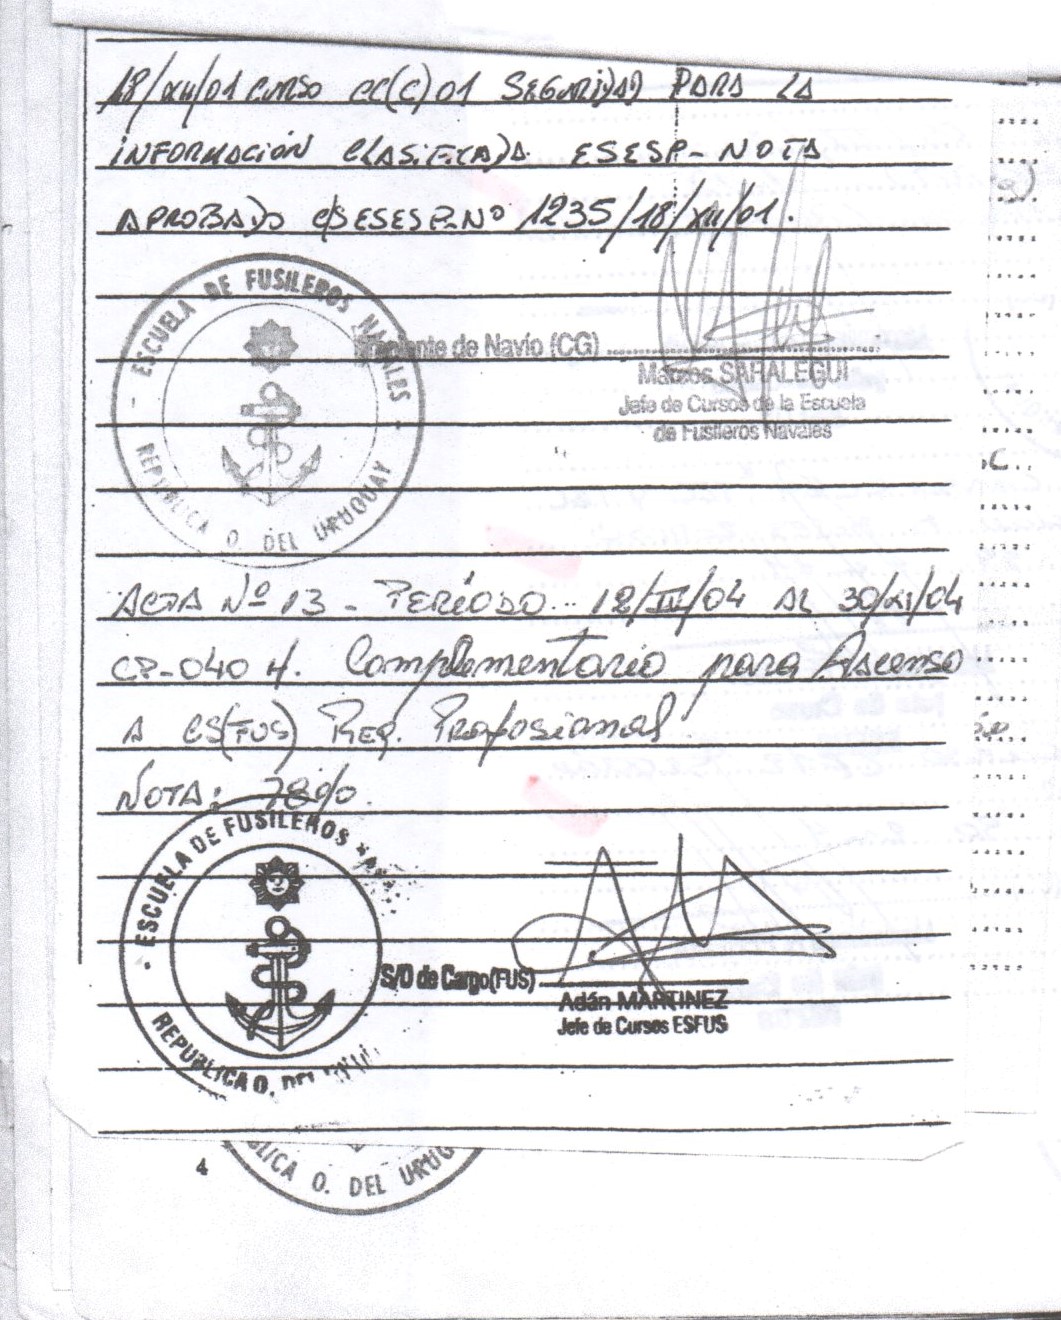 18/XII/01 CURSO CC(C)01 SEGURIDAD PARA LA
INFORMACIÓN CLASIFICADA ESESP- NOTA
APROBADO C/SESESP.Nº 1235/18/XII/01.
ESCUELA DE FUSILEROS NAVALES
REPUBLICA O. DEL URUGUAY
Teniente de Navío (CG)
SARALEGUI
Jefe de Cursos de la Escuela
de Fusileros Navales
ACTA Nº 13 - PERÍODO.. 12/III/04 AL 30/XI/04
CP-040 4. Complementario para Ascenso
A CS(FUS) REQ. Profesional
NOTA: 78%.
ESCUELA DE FUSILEROS
REPUBLICA O. DEL
S/O de Cargo(FUS)
Adán MARTINEZ
Jefe de Cursos ESFUS
4
O. DEL